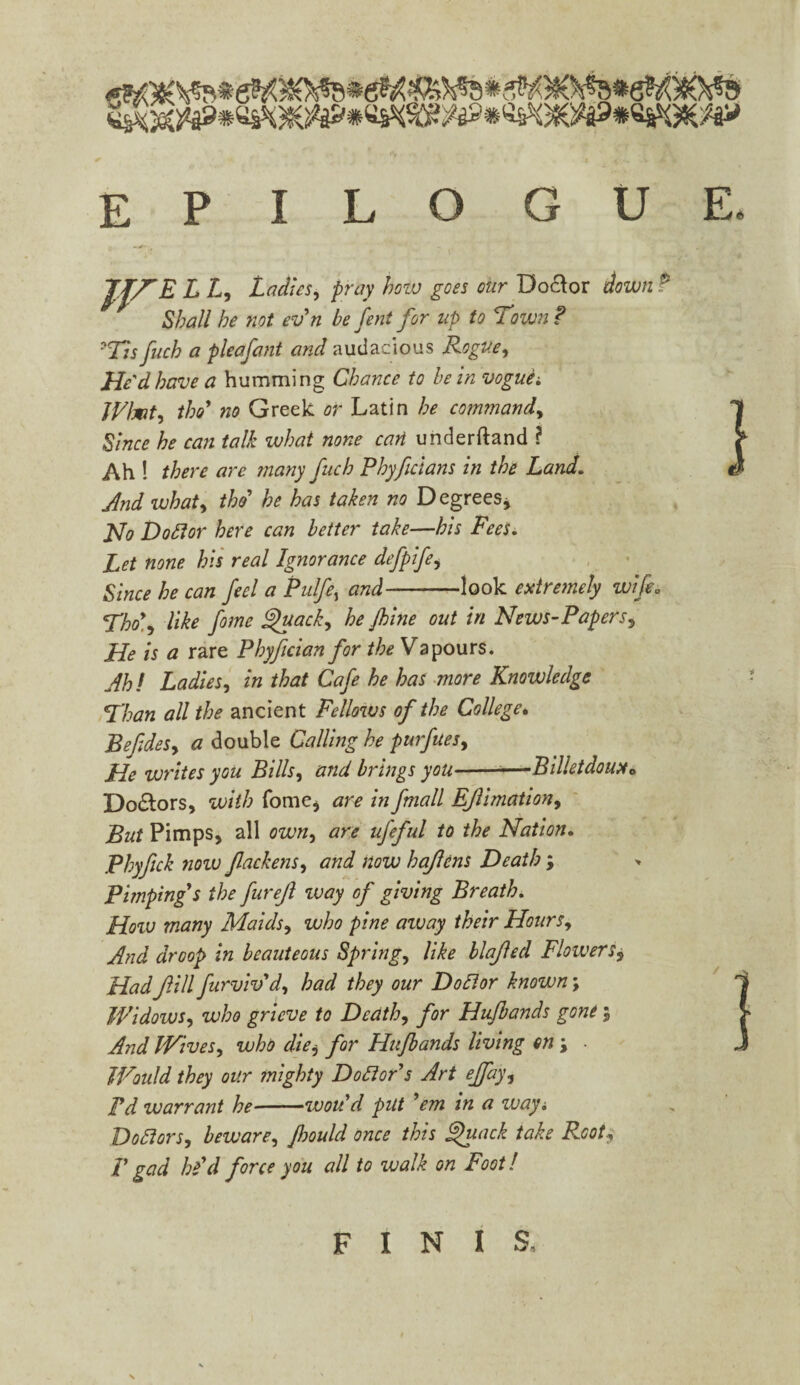 EPILOGUE.
WELL, Ladies, pray how goes our Doctor down?
Shall he not ev'n be ſent for up to Town?
'Tis ſuch a pleaſant and audacious Rogue,
He'd have a humming Chance to be in vogue.
What, tho' no Greek or Latin he command,
Since he can talk what none can underſtand?
Ah! there are many ſuch Phyſicians in the Land.
And what, tho' he has taken no Degrees,
No Doctor here can better take—his Fees.
Let none his real Ignorance deſpiſe,
Since he can feel a Pulſe, and——look extremely wiſe.
Tho', like ſome Quack, he ſhine out in News-Papers,
He is a rare Phyſician for the Vapours.
Ah! Ladies, in that Caſe he has more Knowledge
Than all the ancient Fellows of the College.
Beſides, a double Calling he purſues,
He writes you Bills, and brings you——Billetdoux.
Doctors, with ſome, are in ſmall Eſtimation,
But Pimps, all own, are uſeful to the Nation.
Phyſick now ſlackens, and now haſtens Death;
Pimping's the ſureſt way of giving Breath.
How many Maids, who pine away their Hours,
And droop in beauteous Spring, like blaſted Flowers,
Had ſtill ſurviv'd, had they our Doctor known;
Widows, who grieve to Death, for Huſbands gone;
And Wives, who die, for Huſbands living on;
Would they our mighty Doctor's Art eſſay,
I'd warrant he——wou'd put 'em in a way.
Doctors, beware, ſhould once this Quack take Root,
I'gad he'd force you all to walk on Foot!
FINIS.